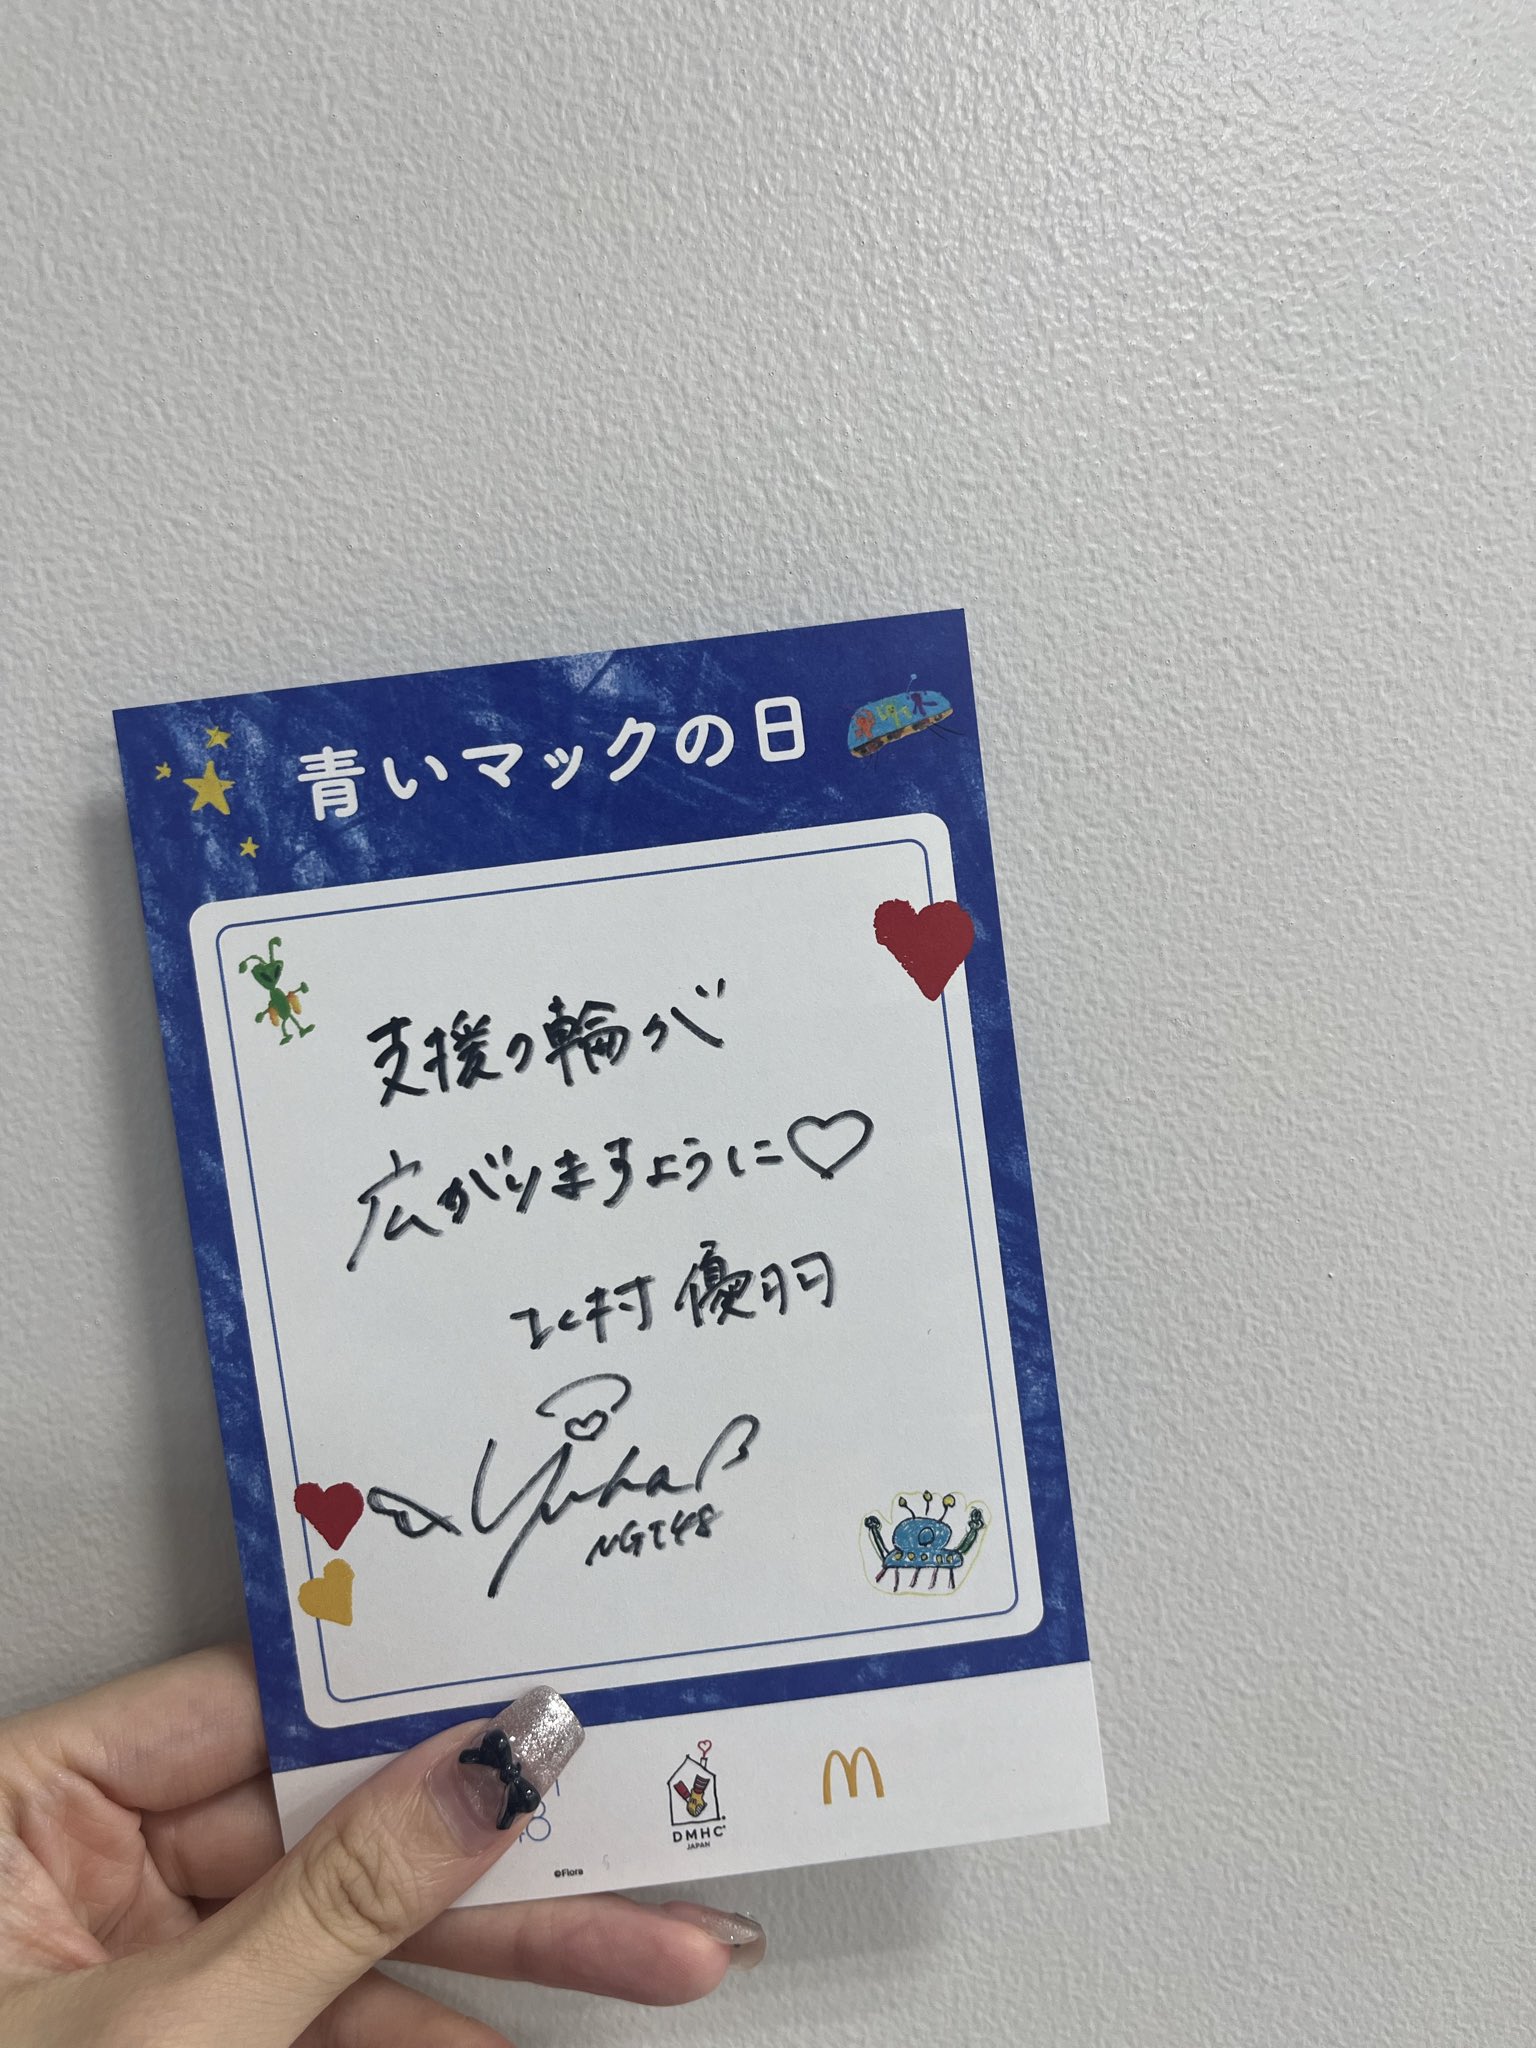 青いマックの日
支援の輪が
広がりますように♡
北村 優羽
Yuha
NGT48
DMHC
JAPAN
©Flora